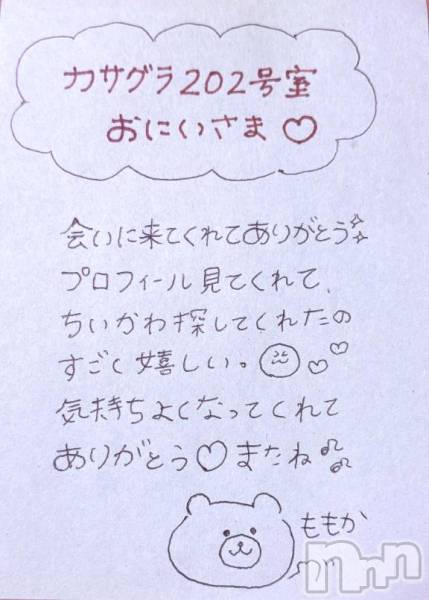 カサグラ202号室
おにいさま♡
会いに来てくれてありがとう
プロフィール見てくれて、
ちいかわ探してくれたの
すごく嬉しい。
気持ちよくなってくれて
ありがとう♡またね♪
ももか
nnn